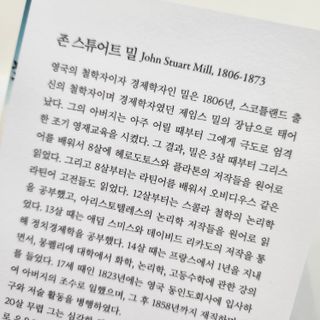 존 스튜어트 밀 John Stuart Mill, 1806-1873
영국의 철학자이자 경제학자인 밀은 1806년, 스코틀랜드 출
신의 철학자이며 경제학자였던 제임스 밀의 장남으로 태어
났다. 그의 아버지는 아주 어릴 때부터 그에게 극도로 엄격
한 조기 영재교육을 시켰다. 그 결과, 밀은 3살 때부터 그리스
어를 배워서 8살에 헤로도토스와 플라톤의 저작들을 원어로
읽었다. 그리고 8살부터는 라틴어를 배워서 오비디우스 같은
라틴어 고전들도 읽었다. 12살부터는 스콜라 철학의 논리학
을 공부했고, 아리스토텔레스의 논리학 저작들을 원어로 읽
었다. 13살 때는 애덤 스미스와 데이비드 리카도의 저작을 통
해 정치경제학을 공부했다. 14살 때는 프랑스에서 1년을 지내
면서, 몽펠리에 대학에서 화학, 논리학, 고등수학에 관한 강의
를 들었다. 17세 때인 1823년에는 영국 동인도회사에 입사하
여 아버지의 조수로 일했으며, 그 후 1858년까지 재직하며
구와 저술 활동을 병행하였다.
20살 무렵 그는 심각한